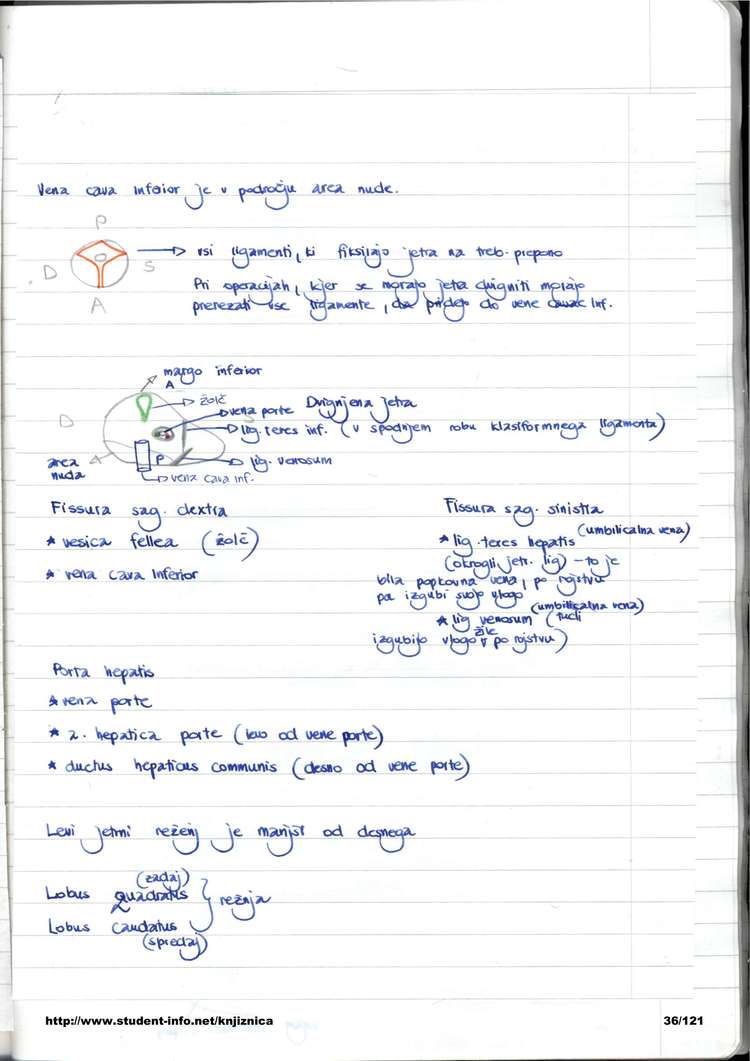 Vena cava inferior je v področju area nude.
P
D
S
A
vsi ligamenti, ki fiksirajo jetra na treb. prepono
Pri operacijah, kjer se morajo jetra dvigniti morajo
prerezati vse ligamente, da pridejo do vene cavae inf.
margo inferior
A
žolč
D
vena porte Dvignjena jetra
lig. teres inf. (v spodnjem robu klasiformnega ligamenta)
area
nuda
P
lig. venosum
vena cava inf.
Fissura sag. dextra
* vesica fellea (žolč)
* vena cava inferior
Fissura sag. sinistra
* lig. teres hepatis (umbilicalna vena)
(okrogli jetr. lig) - to je
bila popkovna vena, po rojstvu
pa izgubi svojo vlogo
* lig venosum (tudi (umbilicalna vena)
izgubijo vlogo žile po rojstvu)
Porta hepatis
* vena porte
* a. hepatica porte (levo od vene porte)
* ductus hepaticus communis (desno od vene porte)
Levi jetrni reženj je manjši od desnega
(zadaj)
Lobus quadratus
režnja
Lobus caudatus
(spredaj)
http://www.student-info.net/knjiznica
36/121